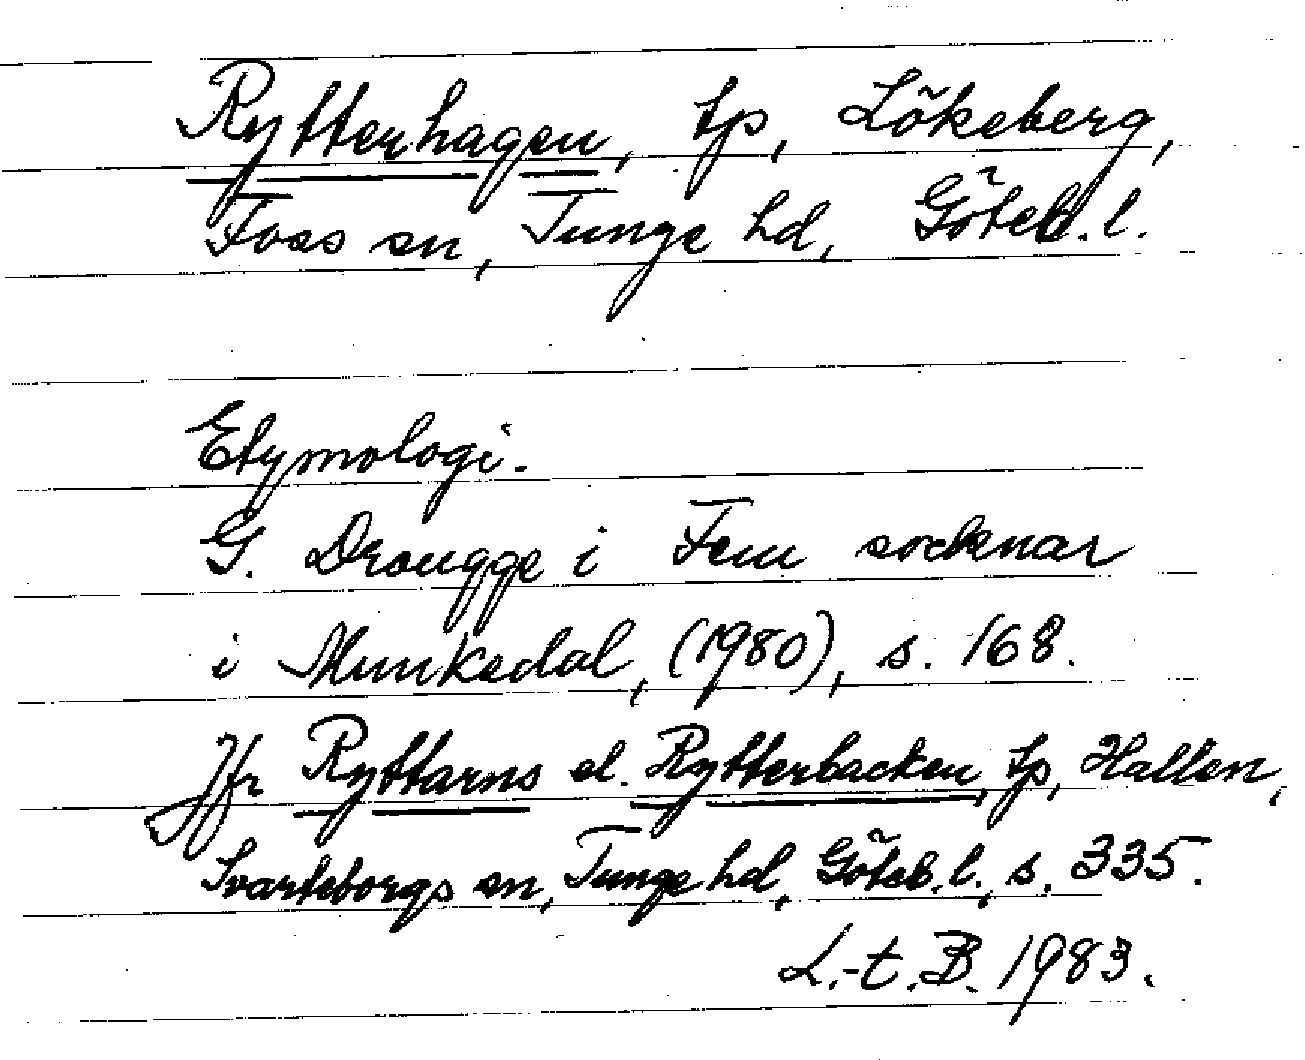 Rytterhagen, tp, Lökeberg,
Foss sn, Tunge hd, Göteb. l.
Etymologi.
G. Drougge i Fem socknar
i Munkedal, (1980), s. 168.
Jfr Ryttarns el. Rytterbacken, tp, Hallen,
Svarteborgs sn, Tunge hd, Göteb. l., s. 335.
L.-t. B. 1983.